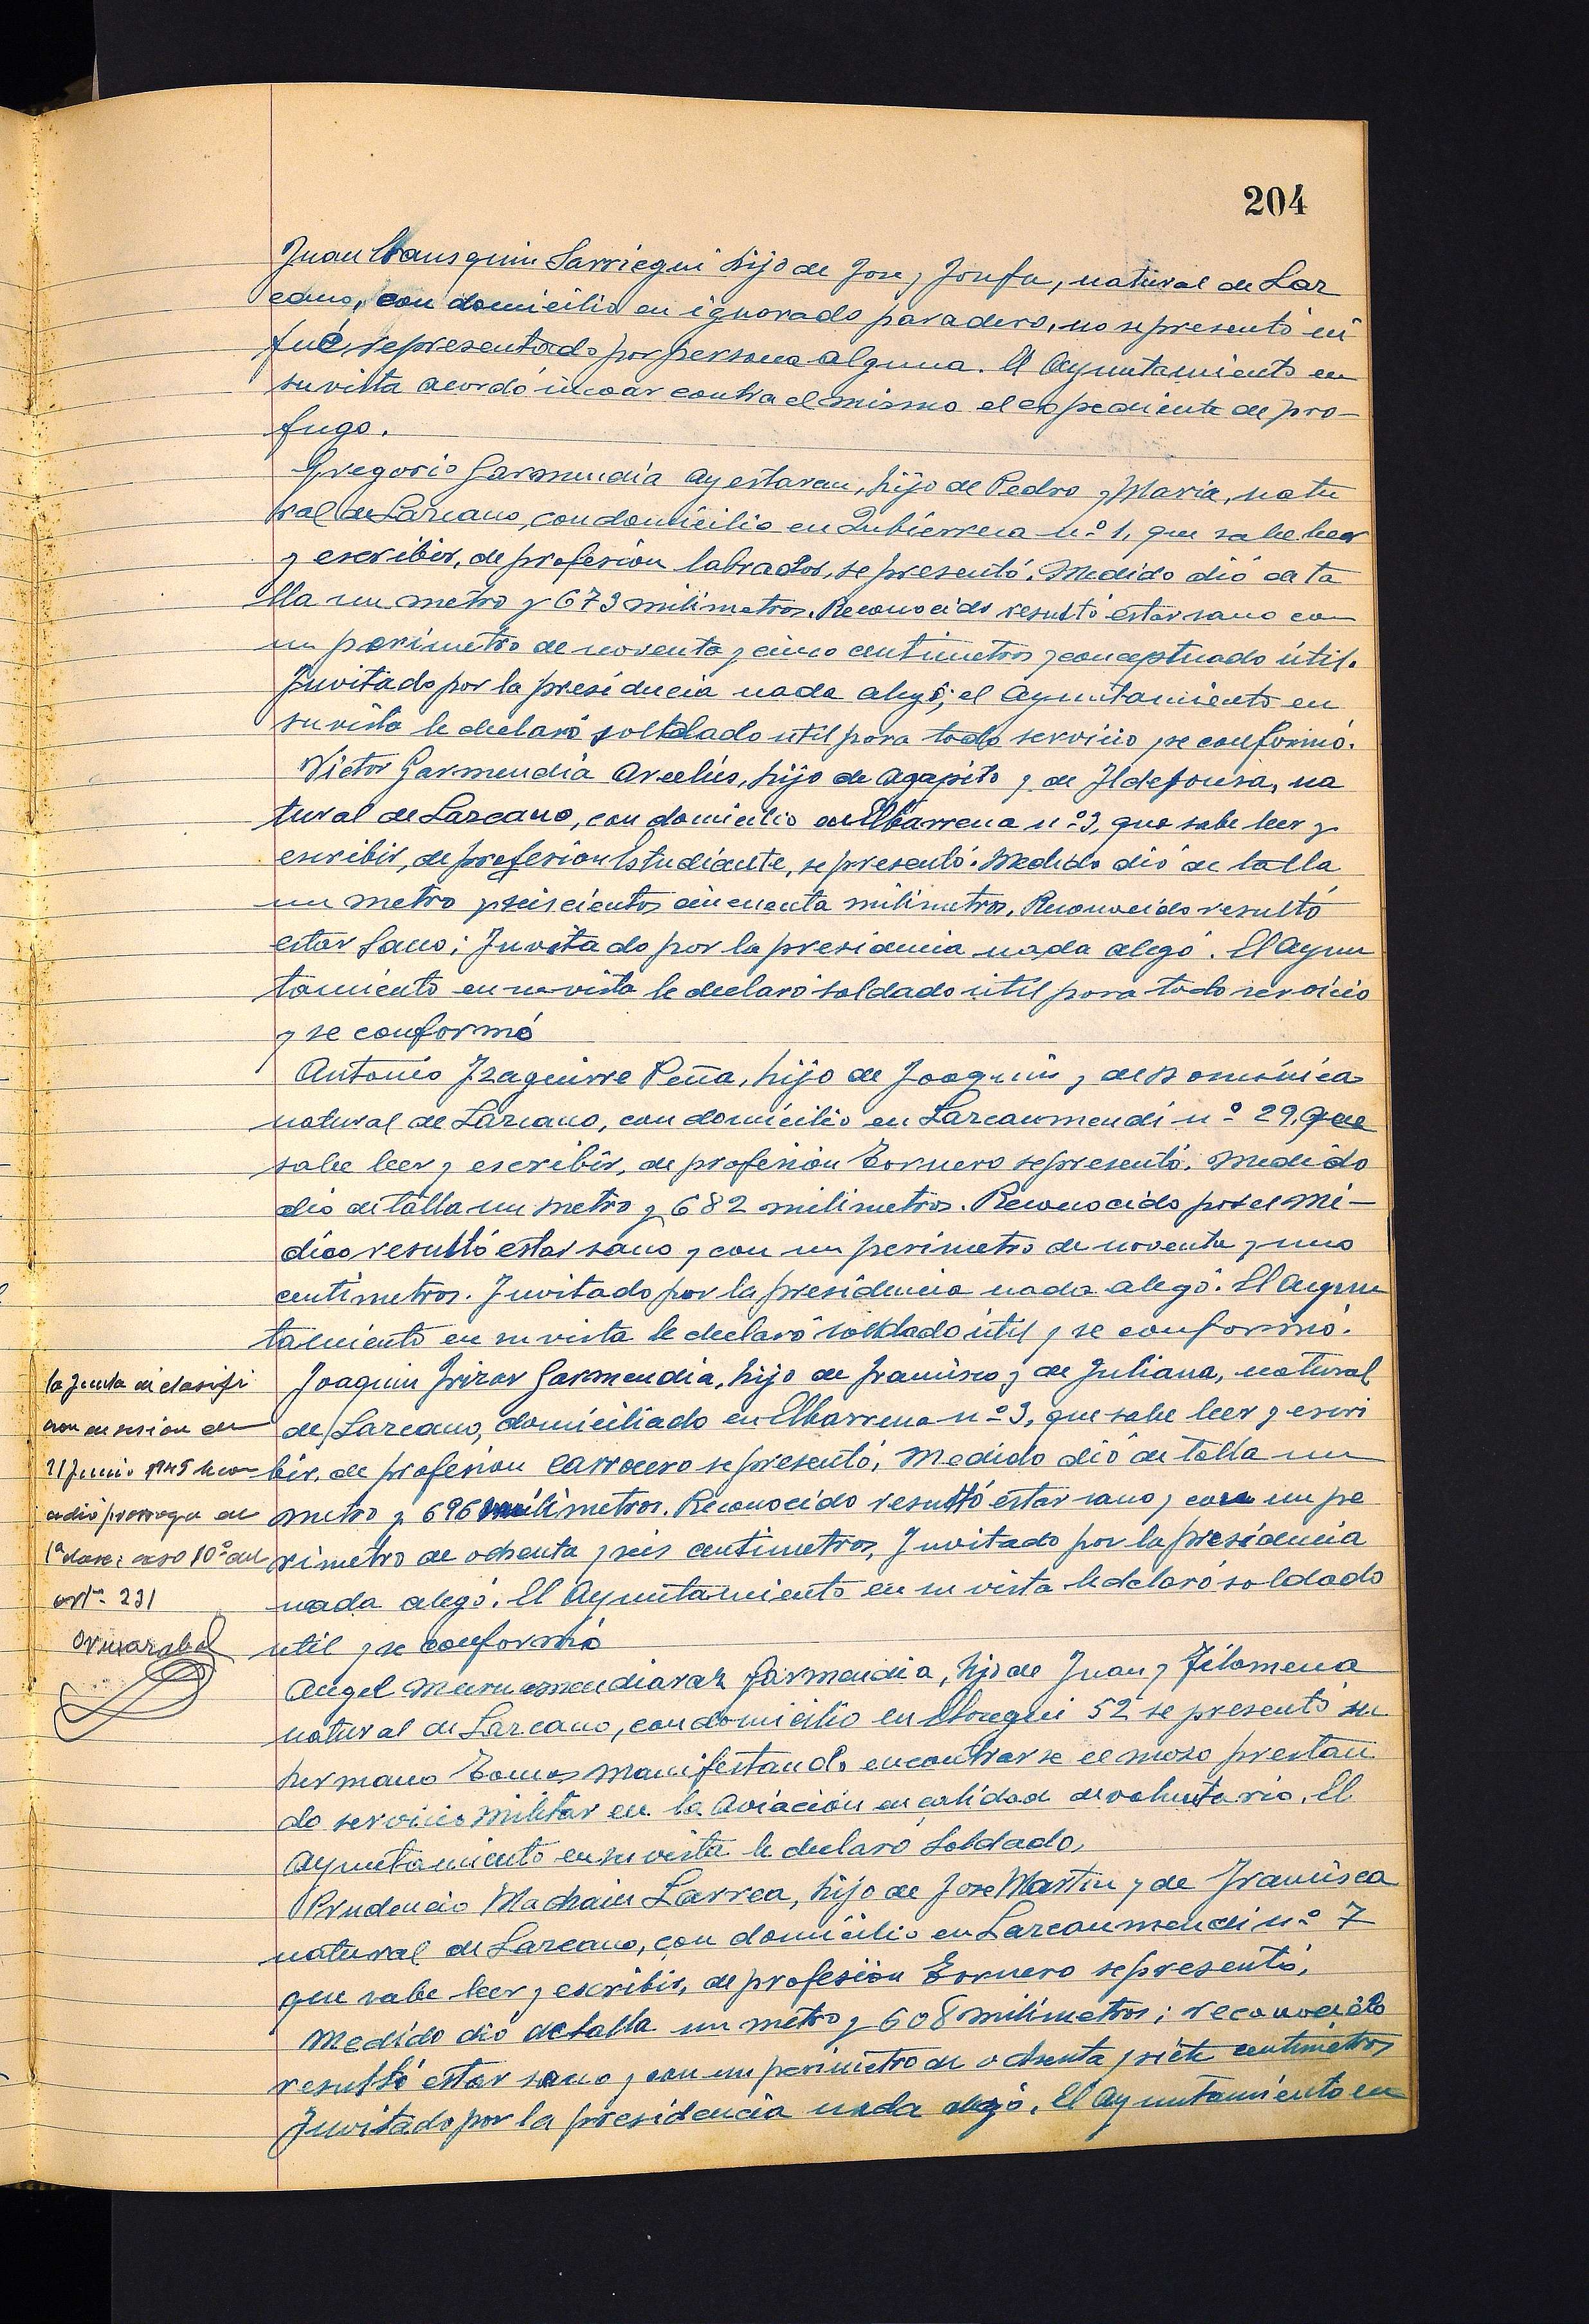 204
Juan Sarriegui hijo de Jose y Josefa, natural de Laz
cano, con domicilio en ignorado paradero, no se presentó ni
fué representado por persona alguna. El Ayuntamiento en
su vista acordó incoar contra el mismo el expediente de pro-
fugo.
Gregorio Garmendia Ayestaran, hijo de Pedro y Maria, natu
ral de Lazcano, con domicilio en nº 1, que sabe leer
y escribir, de profesion labrador, se presentó. Medido dió de ta
lla un metro y 673 milimetros. Reconocido resultó estar sano con
un perimetro de noventa y cinco centimetros y conceptuado útil.
Invitado por la presidencia nada alegó; el Ayuntamiento en
su vista le declaró soldado util para todo servicio y se conformó.
Victor Garmendia Arcelus, hijo de Agapito y de Ildefonsa, na
tural de Lazcano, con domicilio en Elbarrena nº 3, que sabe leer y
escribir, de profesion Estudiante, se presentó. Medido dió de talla
un metro y seiscientos cincuenta milimetros. Reconocido resultó
estar sano; Invitado por la presidencia nada alegó. El Ayun
tamiento en su vista le declaró soldado útil para todo servicio
y se conformó
Antonio Izaguirre Peña, hijo de Joaquin y de Dominica
natural de Lazcano, con domicilio en Lazcanomendi nº 29, que
sabe leer y escribir, de profesion Tornero se presentó. Medido
dió de talla un metro y 682 milimetros. Reconocido por el Mé-
dico resultó estar sano y con un perimetro de noventa y uno
centimetros. Invitado por la presidencia nada alegó. El Ayun
tamiento en su vista le declaró soldado útil y se conformó.
Joaquin Irizar Garmendia, hijo de Francisco y de Juliana, natural
de Lazcano, domiciliado en Elbarrena nº 3, que sabe leer y escri
bir, de profesion carrocero se presentó, Medido dió de talla un
metro y 696 milimetros. Reconocido resultó estar sano y con un pe
rimetro de ochenta y seis centimetros, Invitado por la presidencia
nada alegó. El Ayuntamiento en su vista le declaró soldado
util y se conformó
la Junta de clasifi
cion en sesion de
21 Junio 1945 le con
cedió prorroga de
1ª clase: caso 10º del
artº 231
Angel Garmendia, hijo de Juan y Filomena
natural de Lazcano, con domicilio en 52 se presentó su
hermano Tomas manifestando encontrarse el mozo prestan
do servicio militar en la Aviación en calidad de voluntario. El
Ayuntamiento en su vista le declaró soldado.
Prudencio Machain Larrea, hijo de Jose Martin y de Francisca
natural de Lazcano, con domicilio en Lazcanomendi nº 7
que sabe leer y escribir, de profesion Tornero se presentó,
Medido dió de talla un metro y 608 milimetros; reconocido
resultó estar sano y con un perimetro de ochenta y siete centimetros
Invitado por la presidencia nada alegó. El Ayuntamiento en